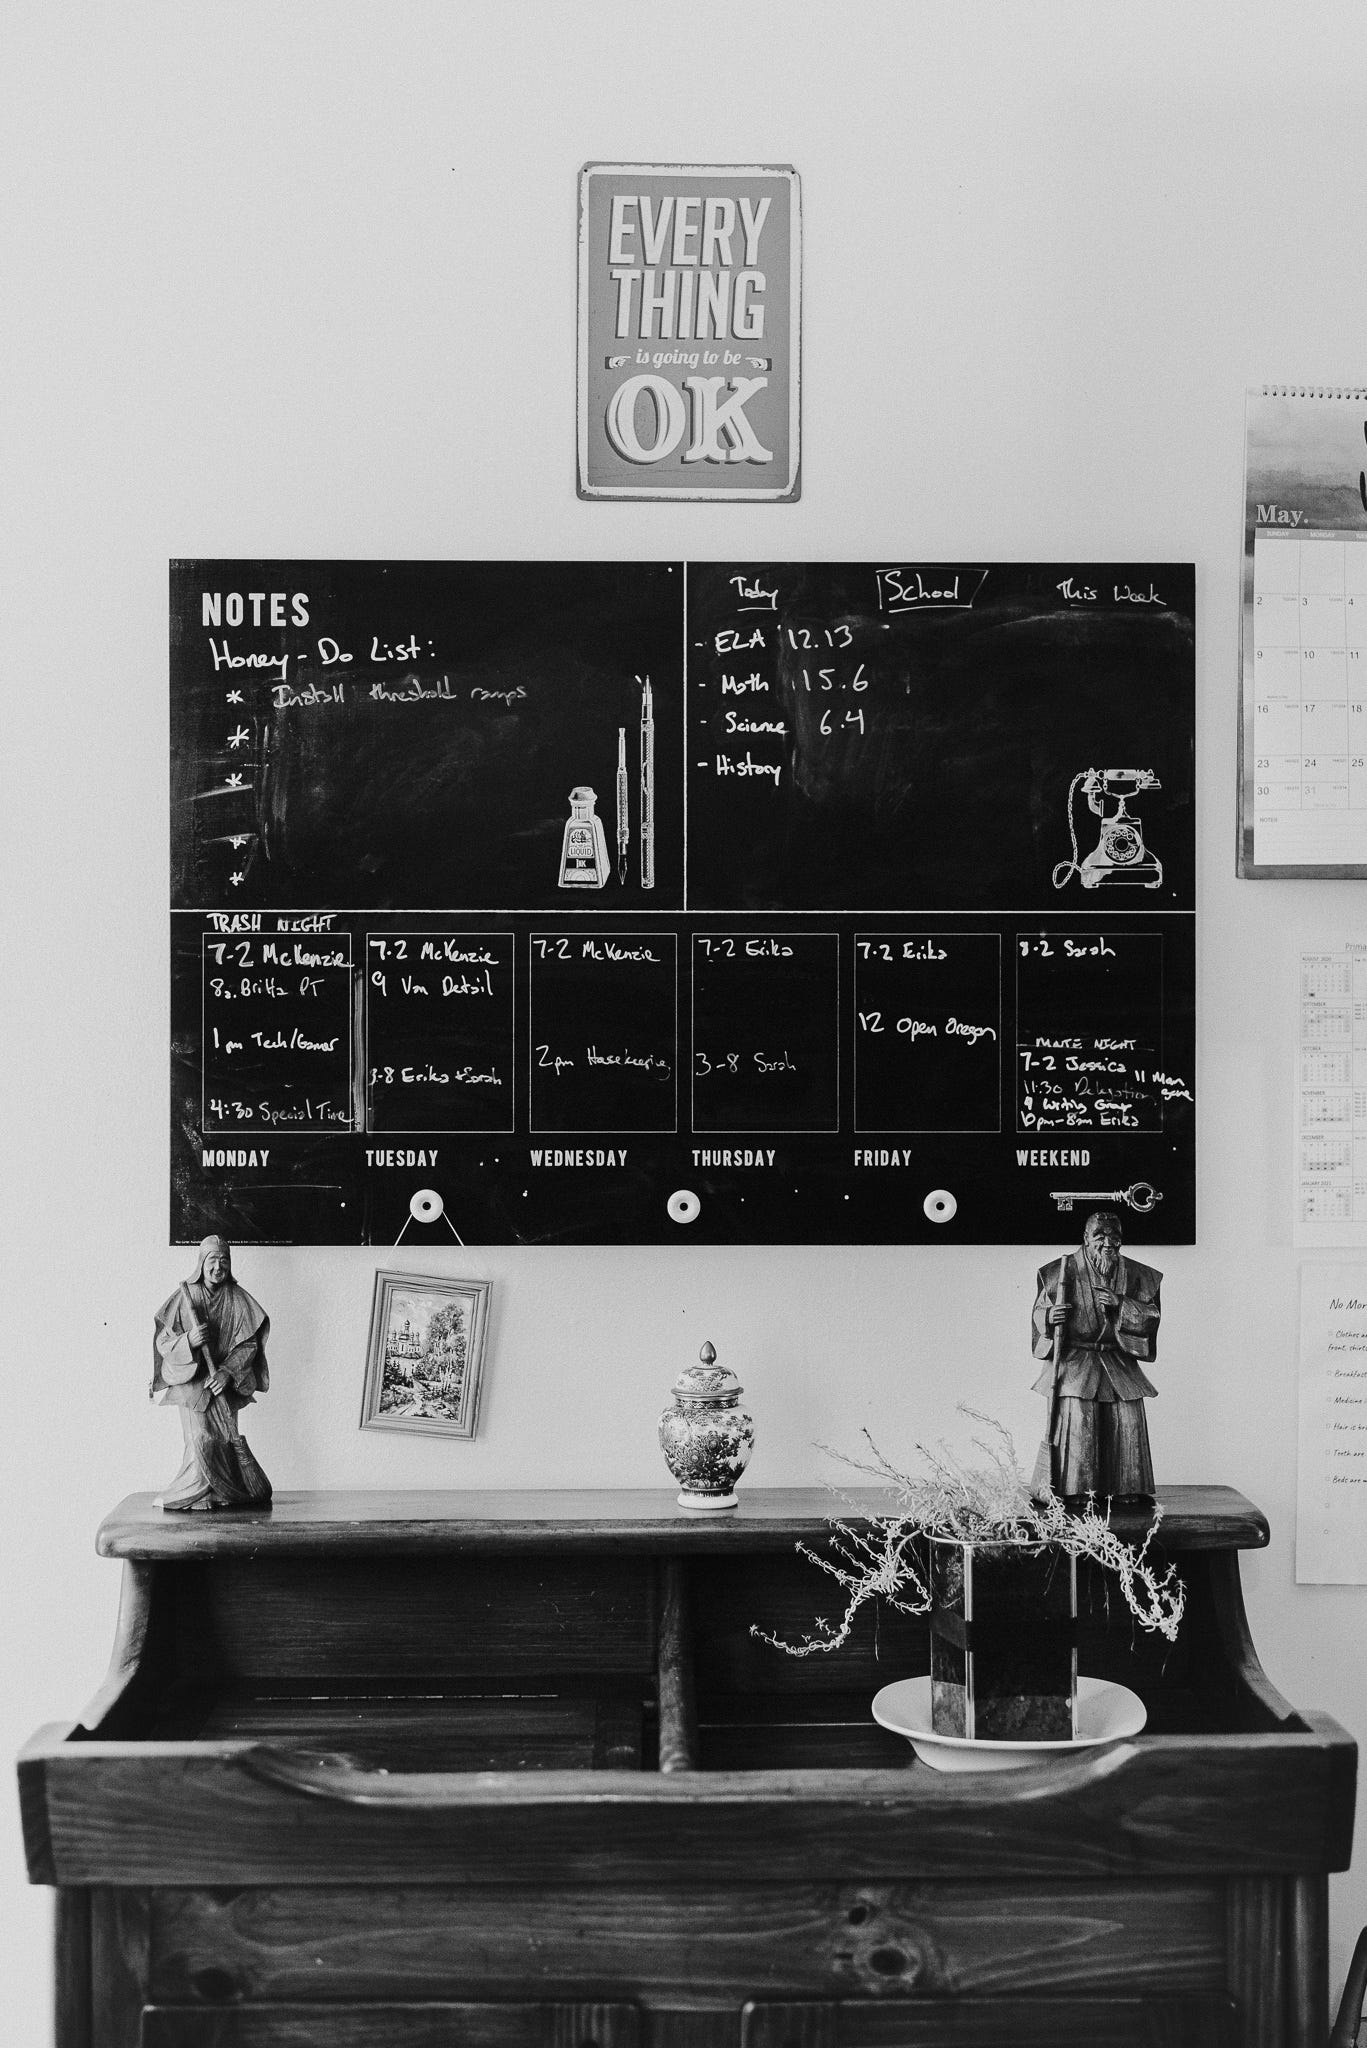 EVERY
THING
is going to be
OK
NOTES
Honey-Do List:
* Install threshold ramps
*
*
*
*
LIQUID
INK
Today
School
This Week
- ELA 12.13
- Math 15.6
- Science 6.4
- History
TRASH NIGHT
7-2 McKenzie
Britta PT
1pm Tech/Gamer
4:30 Special Time
MONDAY
7-2 McKenzie
9 Van Detail
3-8 Erika + Sarah
TUESDAY
7-2 McKenzie
2pm Housekeeping
WEDNESDAY
7-2 Erika
3-8 Sarah
THURSDAY
7-2 Erika
12 Open Oregon
FRIDAY
8-2 Sarah
NIGHT
7-2 Jessica
11:30 Delegation
9 Writing Group
10pm-8am Erika
WEEKEND
May.
SUNDAY MONDAY
2 3 4
9 10 11
16 17 18
23 24 25
30 31
NOTES
AUGUST 2020
SEPTEMBER
OCTOBER
NOVEMBER
DECEMBER
JANUARY 2021
No Mor
Clothes
front, shirts
Breakfast
Medicine
Hair is
Teeth are
Beds are